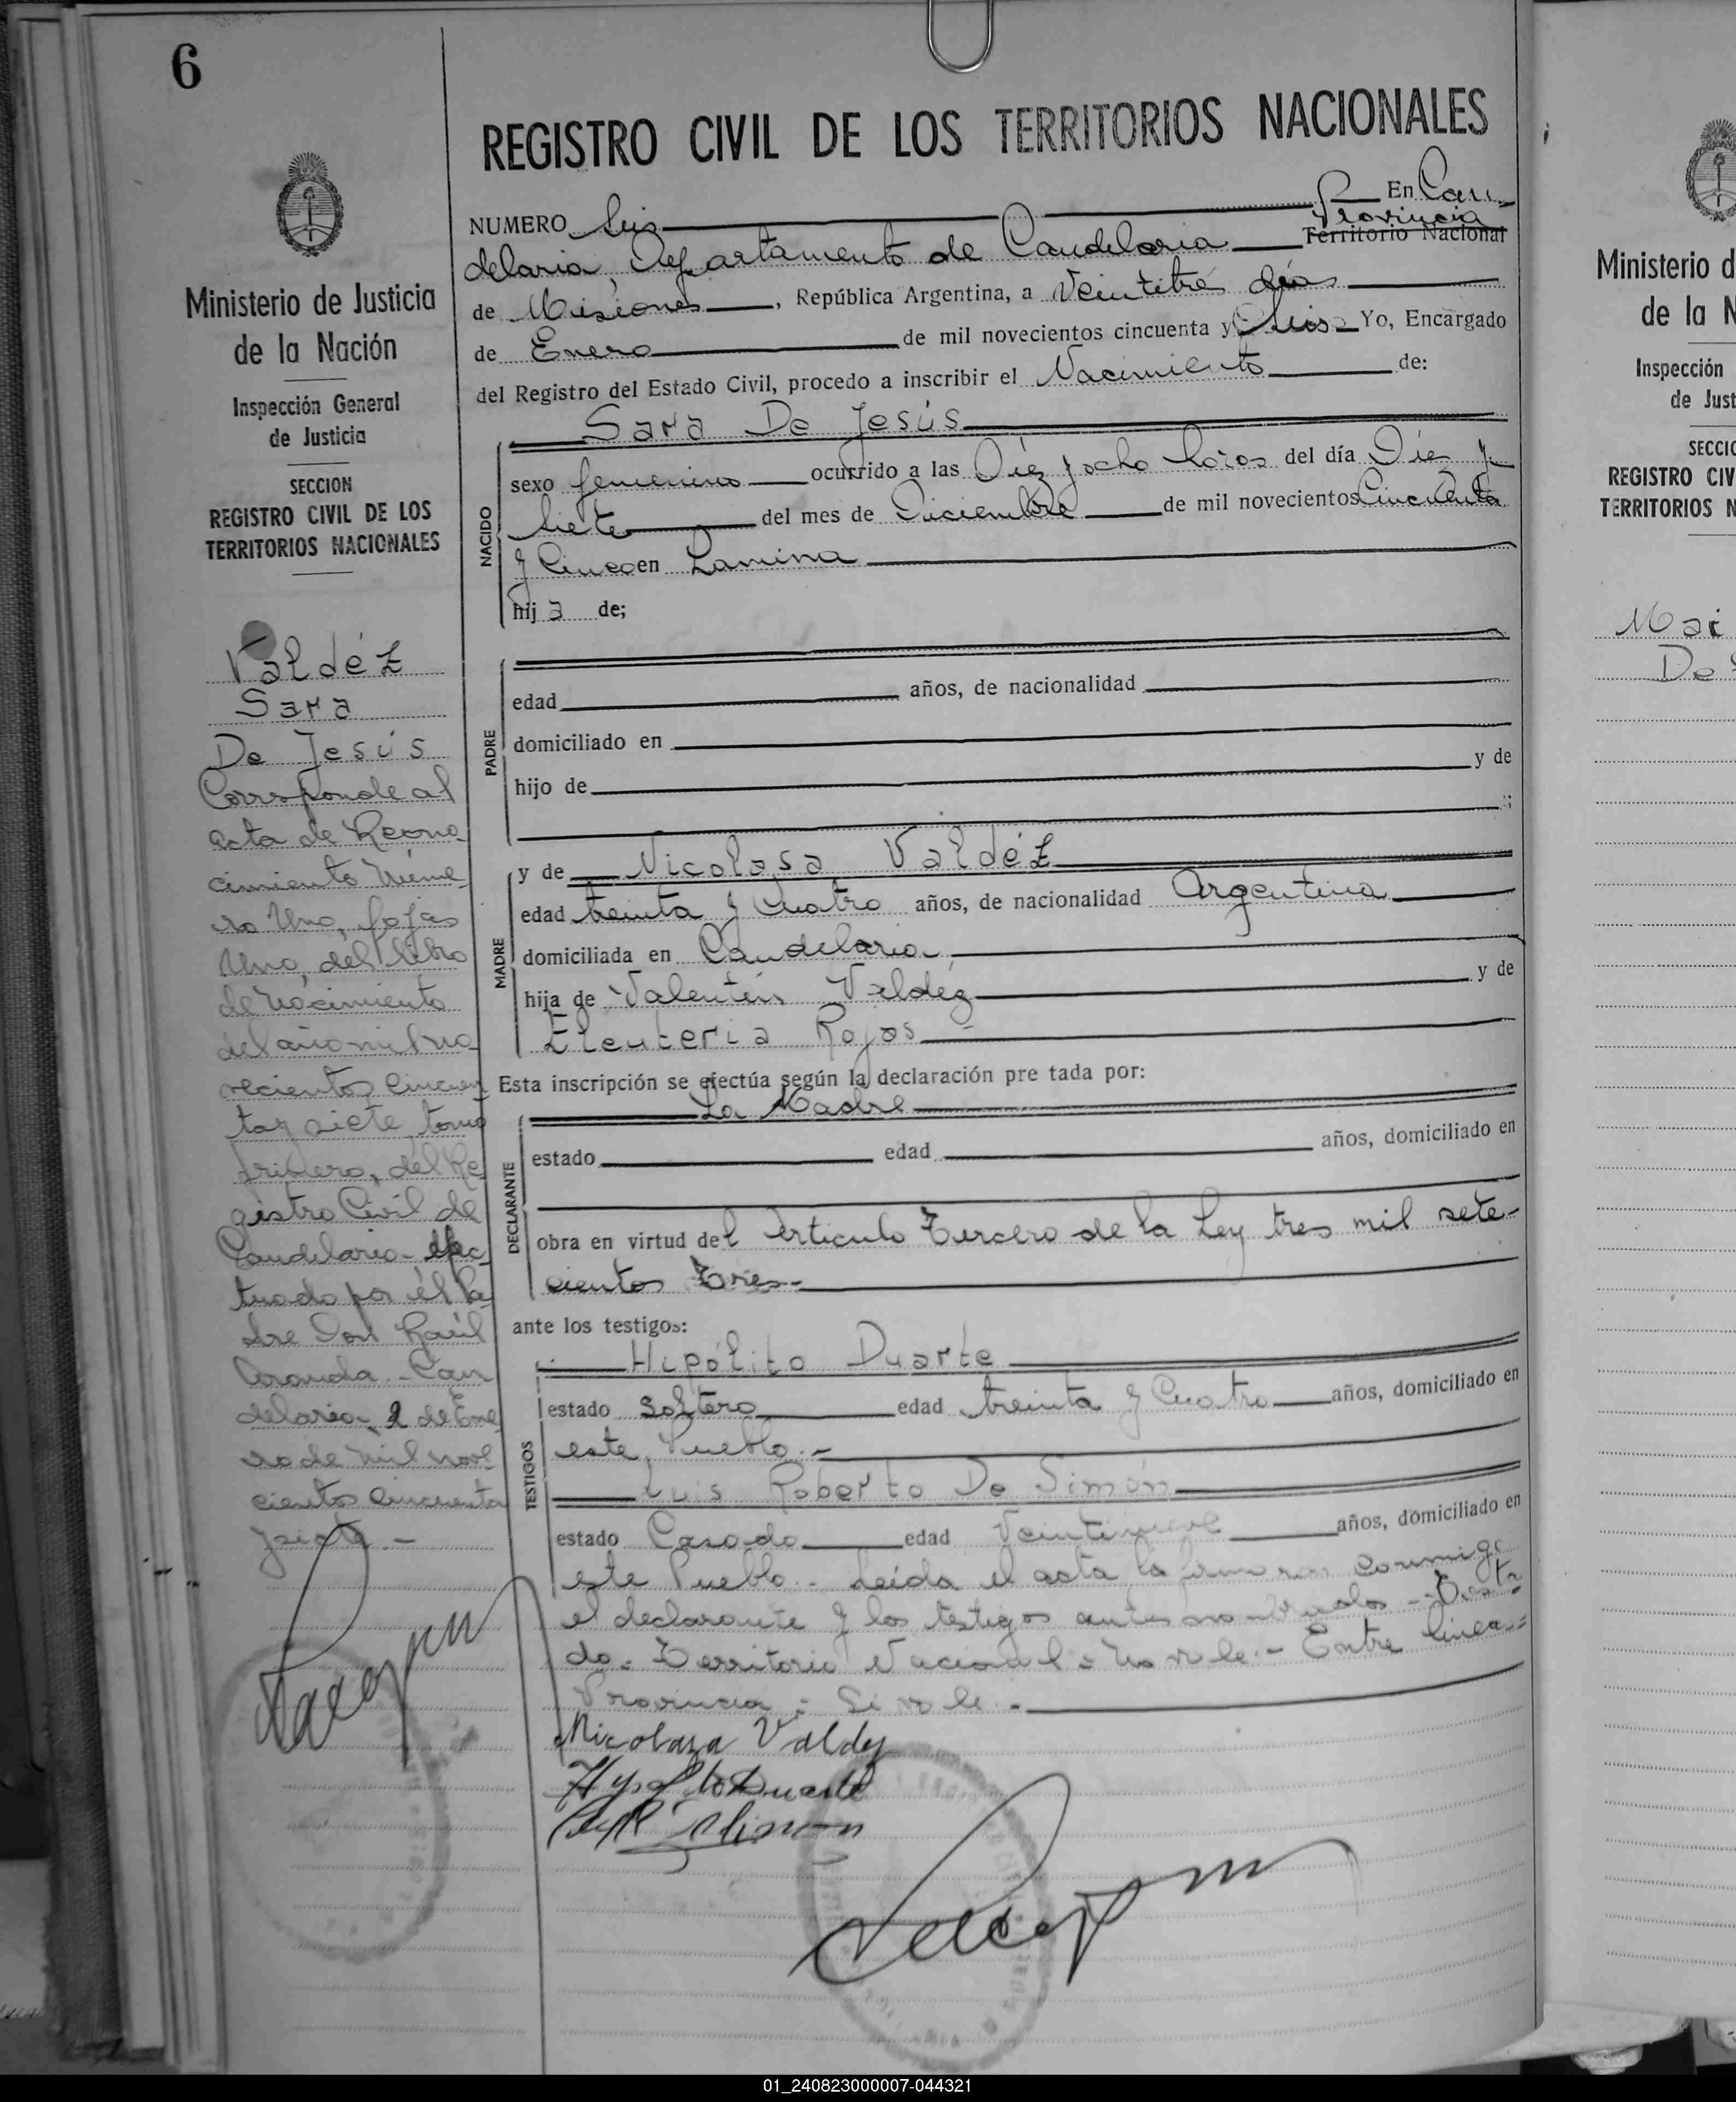 6
REGISTRO CIVIL DE LOS TERRITORIOS NACIONALES
Ministerio de Justicia
de la Nación
Inspección General
de Justicia
SECCION
REGISTRO CIVIL DE LOS
TERRITORIOS NACIONALES
Valdéz
Sara
De Jesús
Corresponde al
acta de Recono-
cimiento Núme-
ro Uno, fojas
Uno, del libro
de Nacimiento
del año mil no-
vecientos cincuen
ta y siete, tomo
primero, del Re
gistro Civil de
Candelaria - efec
tuado por él Pa
dre Don Raúl
Aranda - Can
delaria - 2 de Ene
ro de mil nove
cientos cincuenta
y siete. -
NUMERO Seis En Can-
Provincia
delaria, Departamento de Candelaria Territorio Nacional
de Misiones, República Argentina, a Veintitrés días
de Enero de mil novecientos cincuenta y Seis Yo, Encargado
del Registro del Estado Civil, procedo a inscribir el Nacimiento de:
Sara De Jesús
NACIDO
sexo femenino ocurrido a las Diez y ocho horas del día Diez y
Siete del mes de Diciembre de mil novecientos Cincuenta
y Cinco en Lamina
hija de;
PADRE
edad años, de nacionalidad
domiciliado en
hijo de y de
;
MADRE
y de Nicolasa Valdéz
edad treinta y Cuatro años, de nacionalidad Argentina
domiciliada en Candelaria
hija de Valentín Valdéz y de
Eleuteria Rojas
Esta inscripción se efectúa según la declaración pre tada por:
DECLARANTE
La Madre
estado edad años, domiciliado en
obra en virtud del Artículo Tercero de la Ley tres mil sete-
cientos Tres-
ante los testigos:
TESTIGOS
Hipólito Duarte
estado Soltero edad treinta y Cuatro años, domiciliado en
este Pueblo. -
Luis Roberto De Simón
estado Casado edad Veintinueve años, domiciliado en
este Pueblo. - Leída el acta la firmaron conmigo
el declarante y los testigos antes nombrados - Testa
do = Territorio Nacional = No vale. - Entre líneas =
Provincia = Si vale. -
Nicolaza Valdez
Hypolito Duarte
Ministerio d
de la N
Inspección
de Just
SECCIO
REGISTRO CIV
TERRITORIOS N
Mar
De
01_240823000007-044321